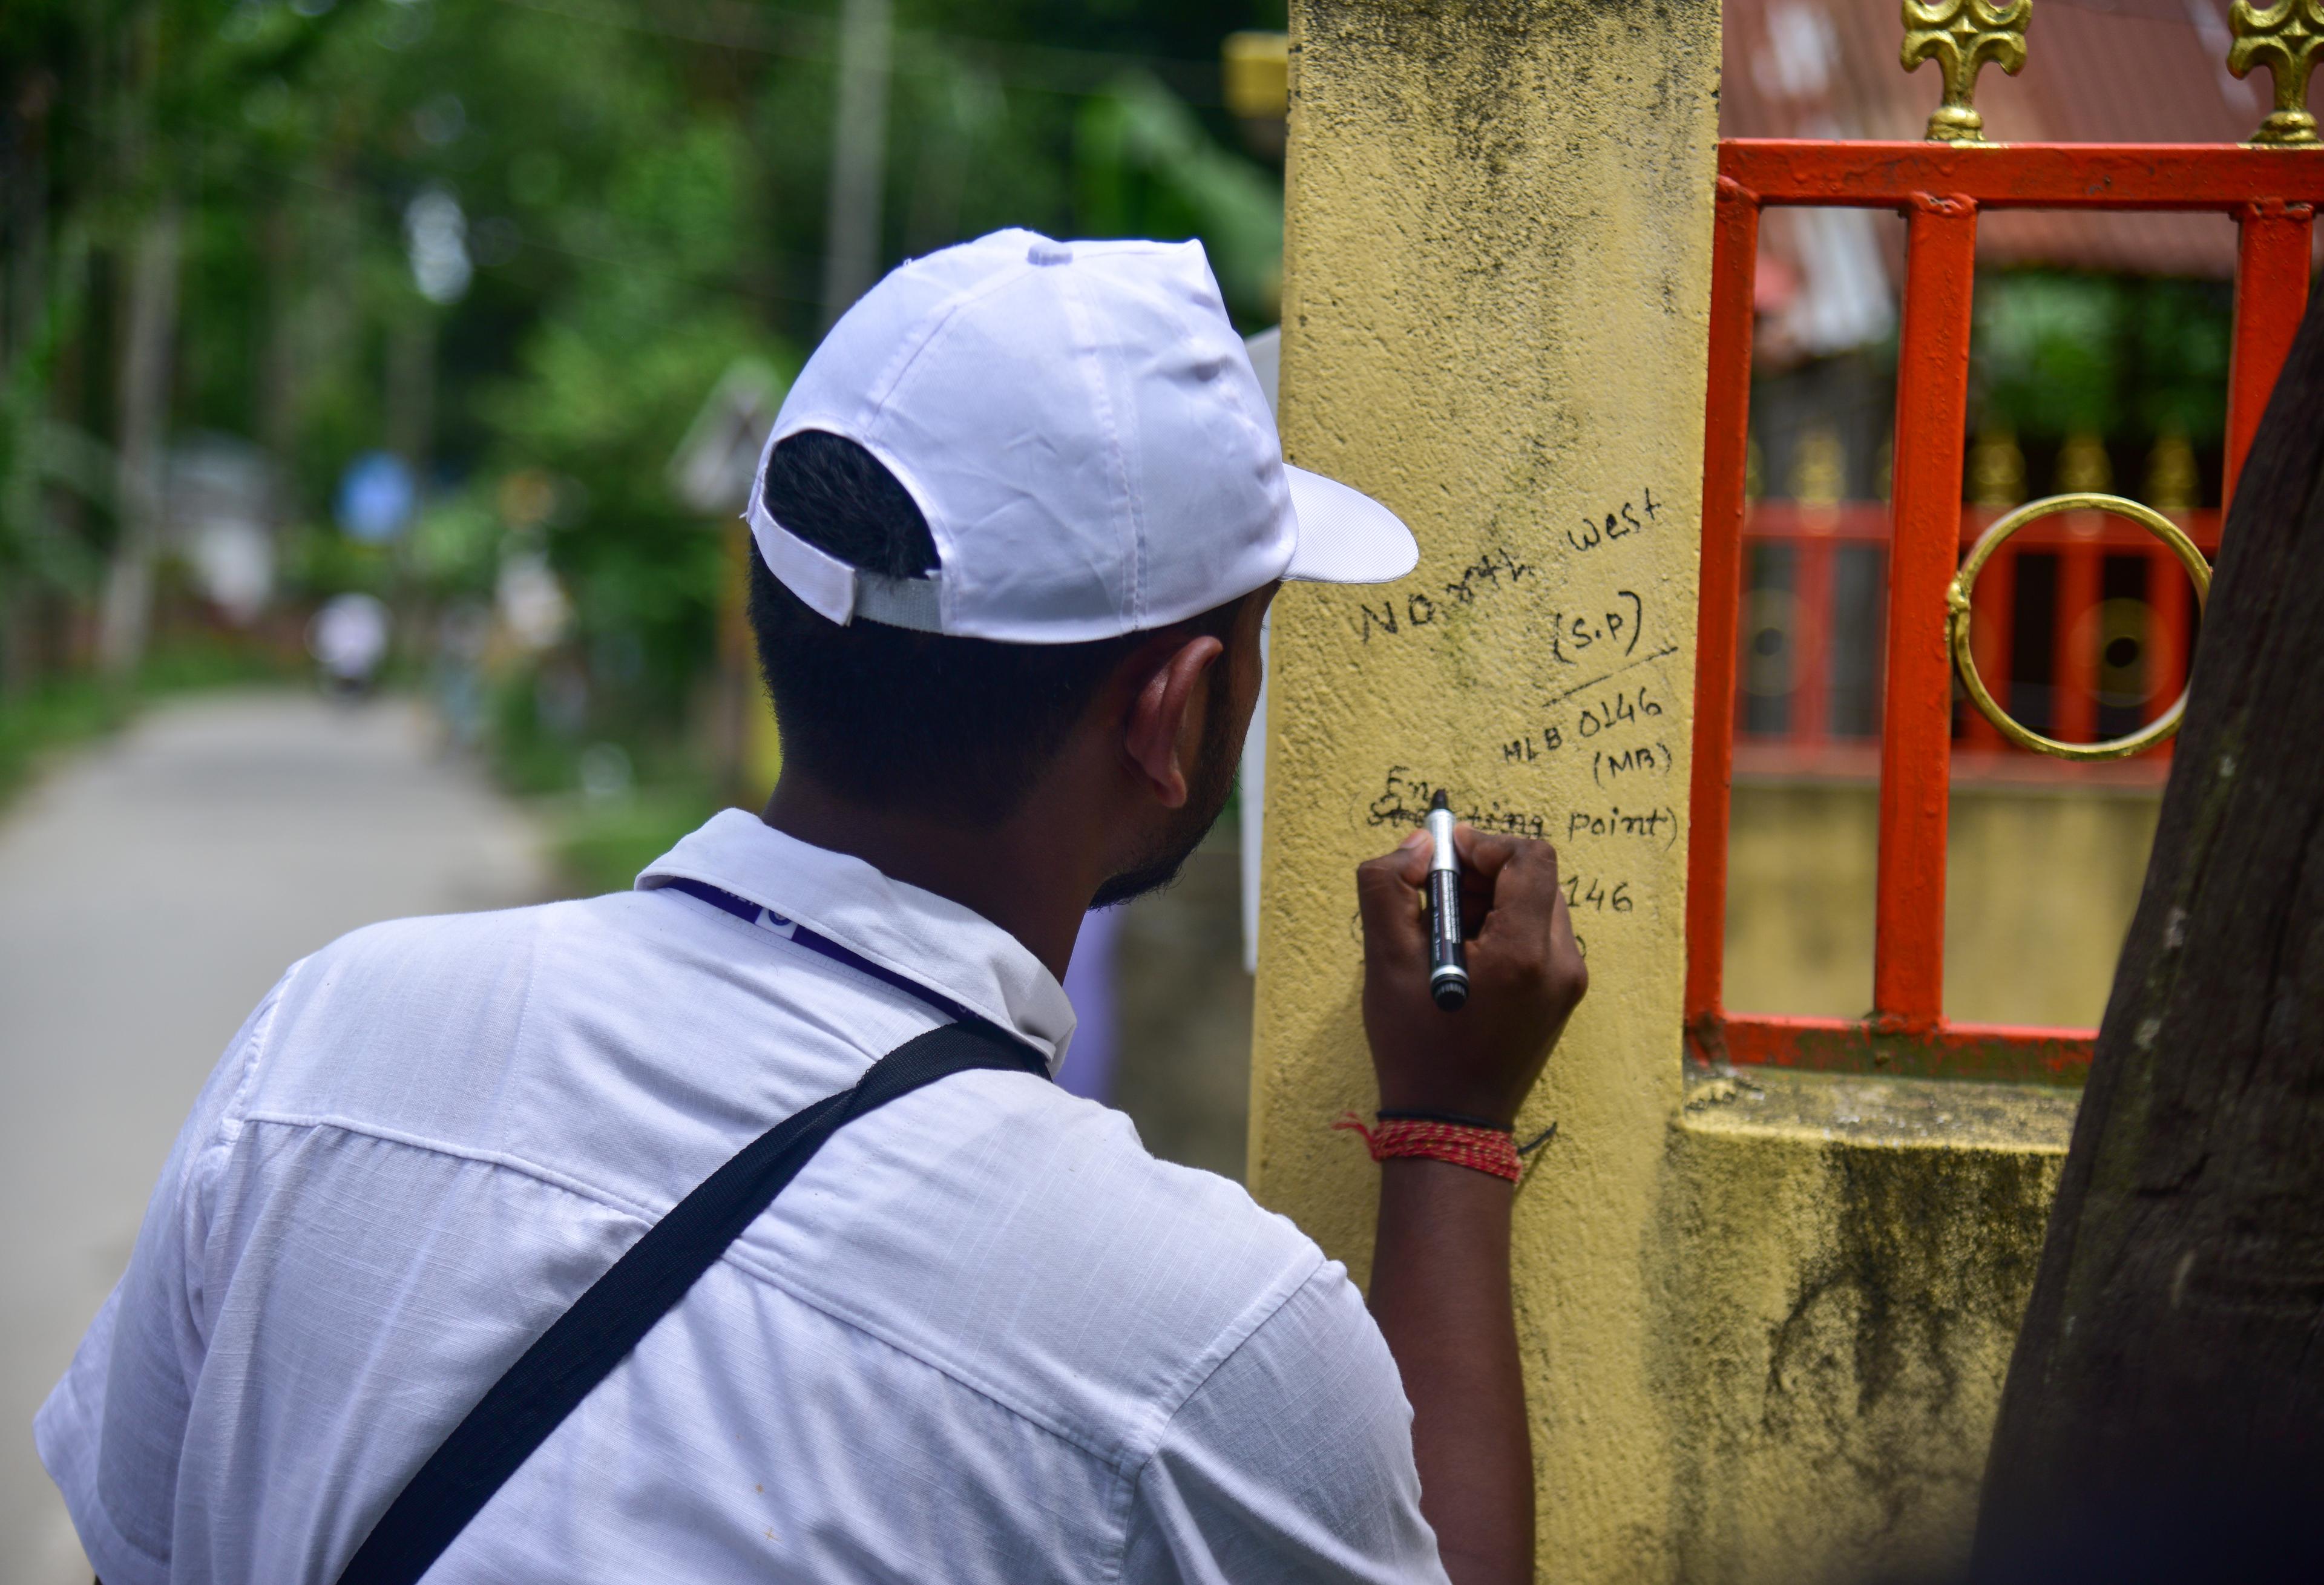 North West
(S.P)
HLB 0146
(MB)
En
(Starting point)
146